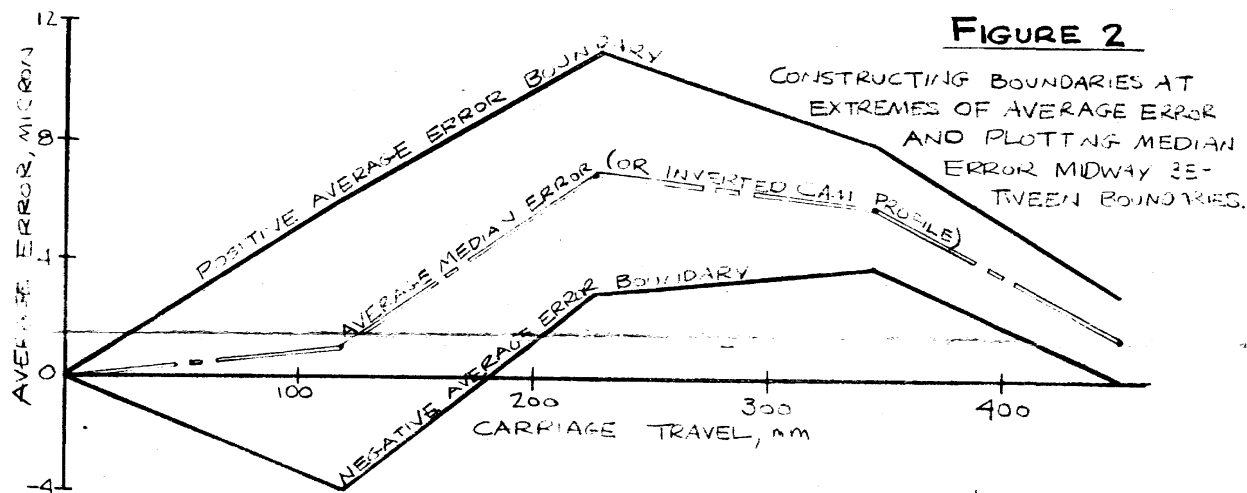 FIGURE 2
CONSTRUCTING BOUNDARIES AT
EXTREMES OF AVERAGE ERROR
AND PLOTTING MEDIAN
ERROR MIDWAY BE-
TWEEN BOUNDARIES.
AVERAGE ERROR, MICRON
12
8
4
0
-4
POSITIVE AVERAGE ERROR BOUNDARY
AVERAGE MEDIAN ERROR (OR INVERTED CAM PROFILE)
NEGATIVE AVERAGE ERROR BOUNDARY
100
200
300
400
CARRIAGE TRAVEL, mm